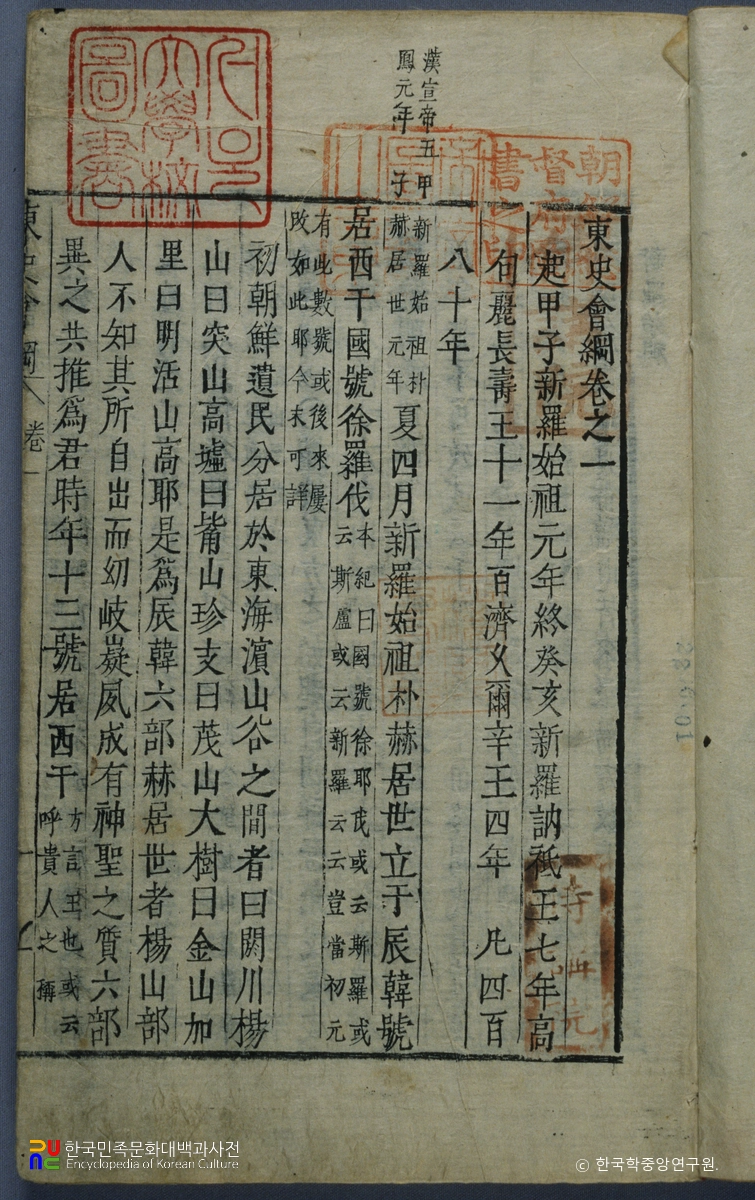 東史會綱卷之一
起甲子新羅始祖元年終癸亥新羅訥祗王七年高
句麗長壽王十一年百濟久爾辛王四年 凡四百
八十年
漢宣帝五
鳳元年
甲
子
新羅始祖朴
赫居世元年
夏四月新羅始祖朴赫居世立于辰韓號
居西干國號徐羅伐
本紀曰國號徐耶伐或云斯羅或
云斯盧或云新羅云云豈當初元
有此數號或後來屢
改如此耶今未可詳
初朝鮮遺民分居於東海濵山谷之間者曰閼川楊
山曰突山高墟曰觜山珍支曰茂山大樹曰金山加
里曰明活山高耶是爲辰韓六部赫居世者楊山部
人不知其所自出而幼岐嶷夙成有神聖之質六部
異之共推爲君時年十三號居西干
方言王也或云
呼貴人之稱
東史會綱 卷一
大學校
圖書
朝
督府
書之印
한국민족문화대백과사전
Encyclopedia of Korean Culture
© 한국학중앙연구원.